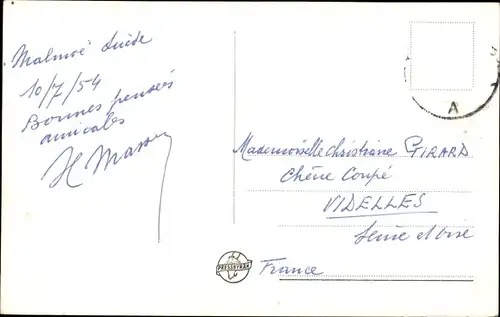 Malmoë Suède
10/7/54
Bonnes pensées
amicales
H Masson
Mademoiselle Christiane GIRARD
Chêne Coupé
VIDELLES
Seine et Oise
France
PRESSBYRÅN
A